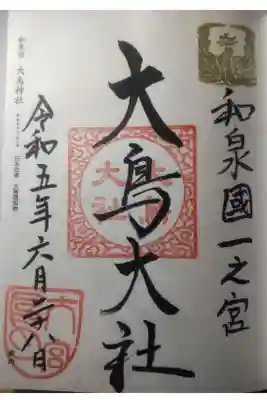 和泉國一之宮
大鳥大社
大鳥
大社
令和五年六月廿八日
大鳥神社